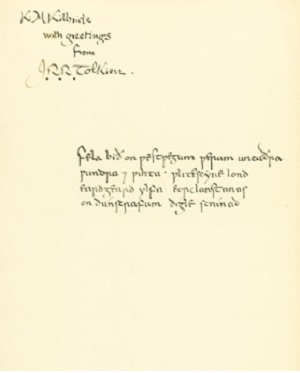 K.M Kilbride
with greetings
from
J.R.R.Tolkien.
Fela bið on ƿestƿegum ƿerum uncúðra
ƿundra ⁊ ƿihta · ƿlitescýne lond
eardgeard ylfa · eorclanstanas
on dúnscrafum digle scínað